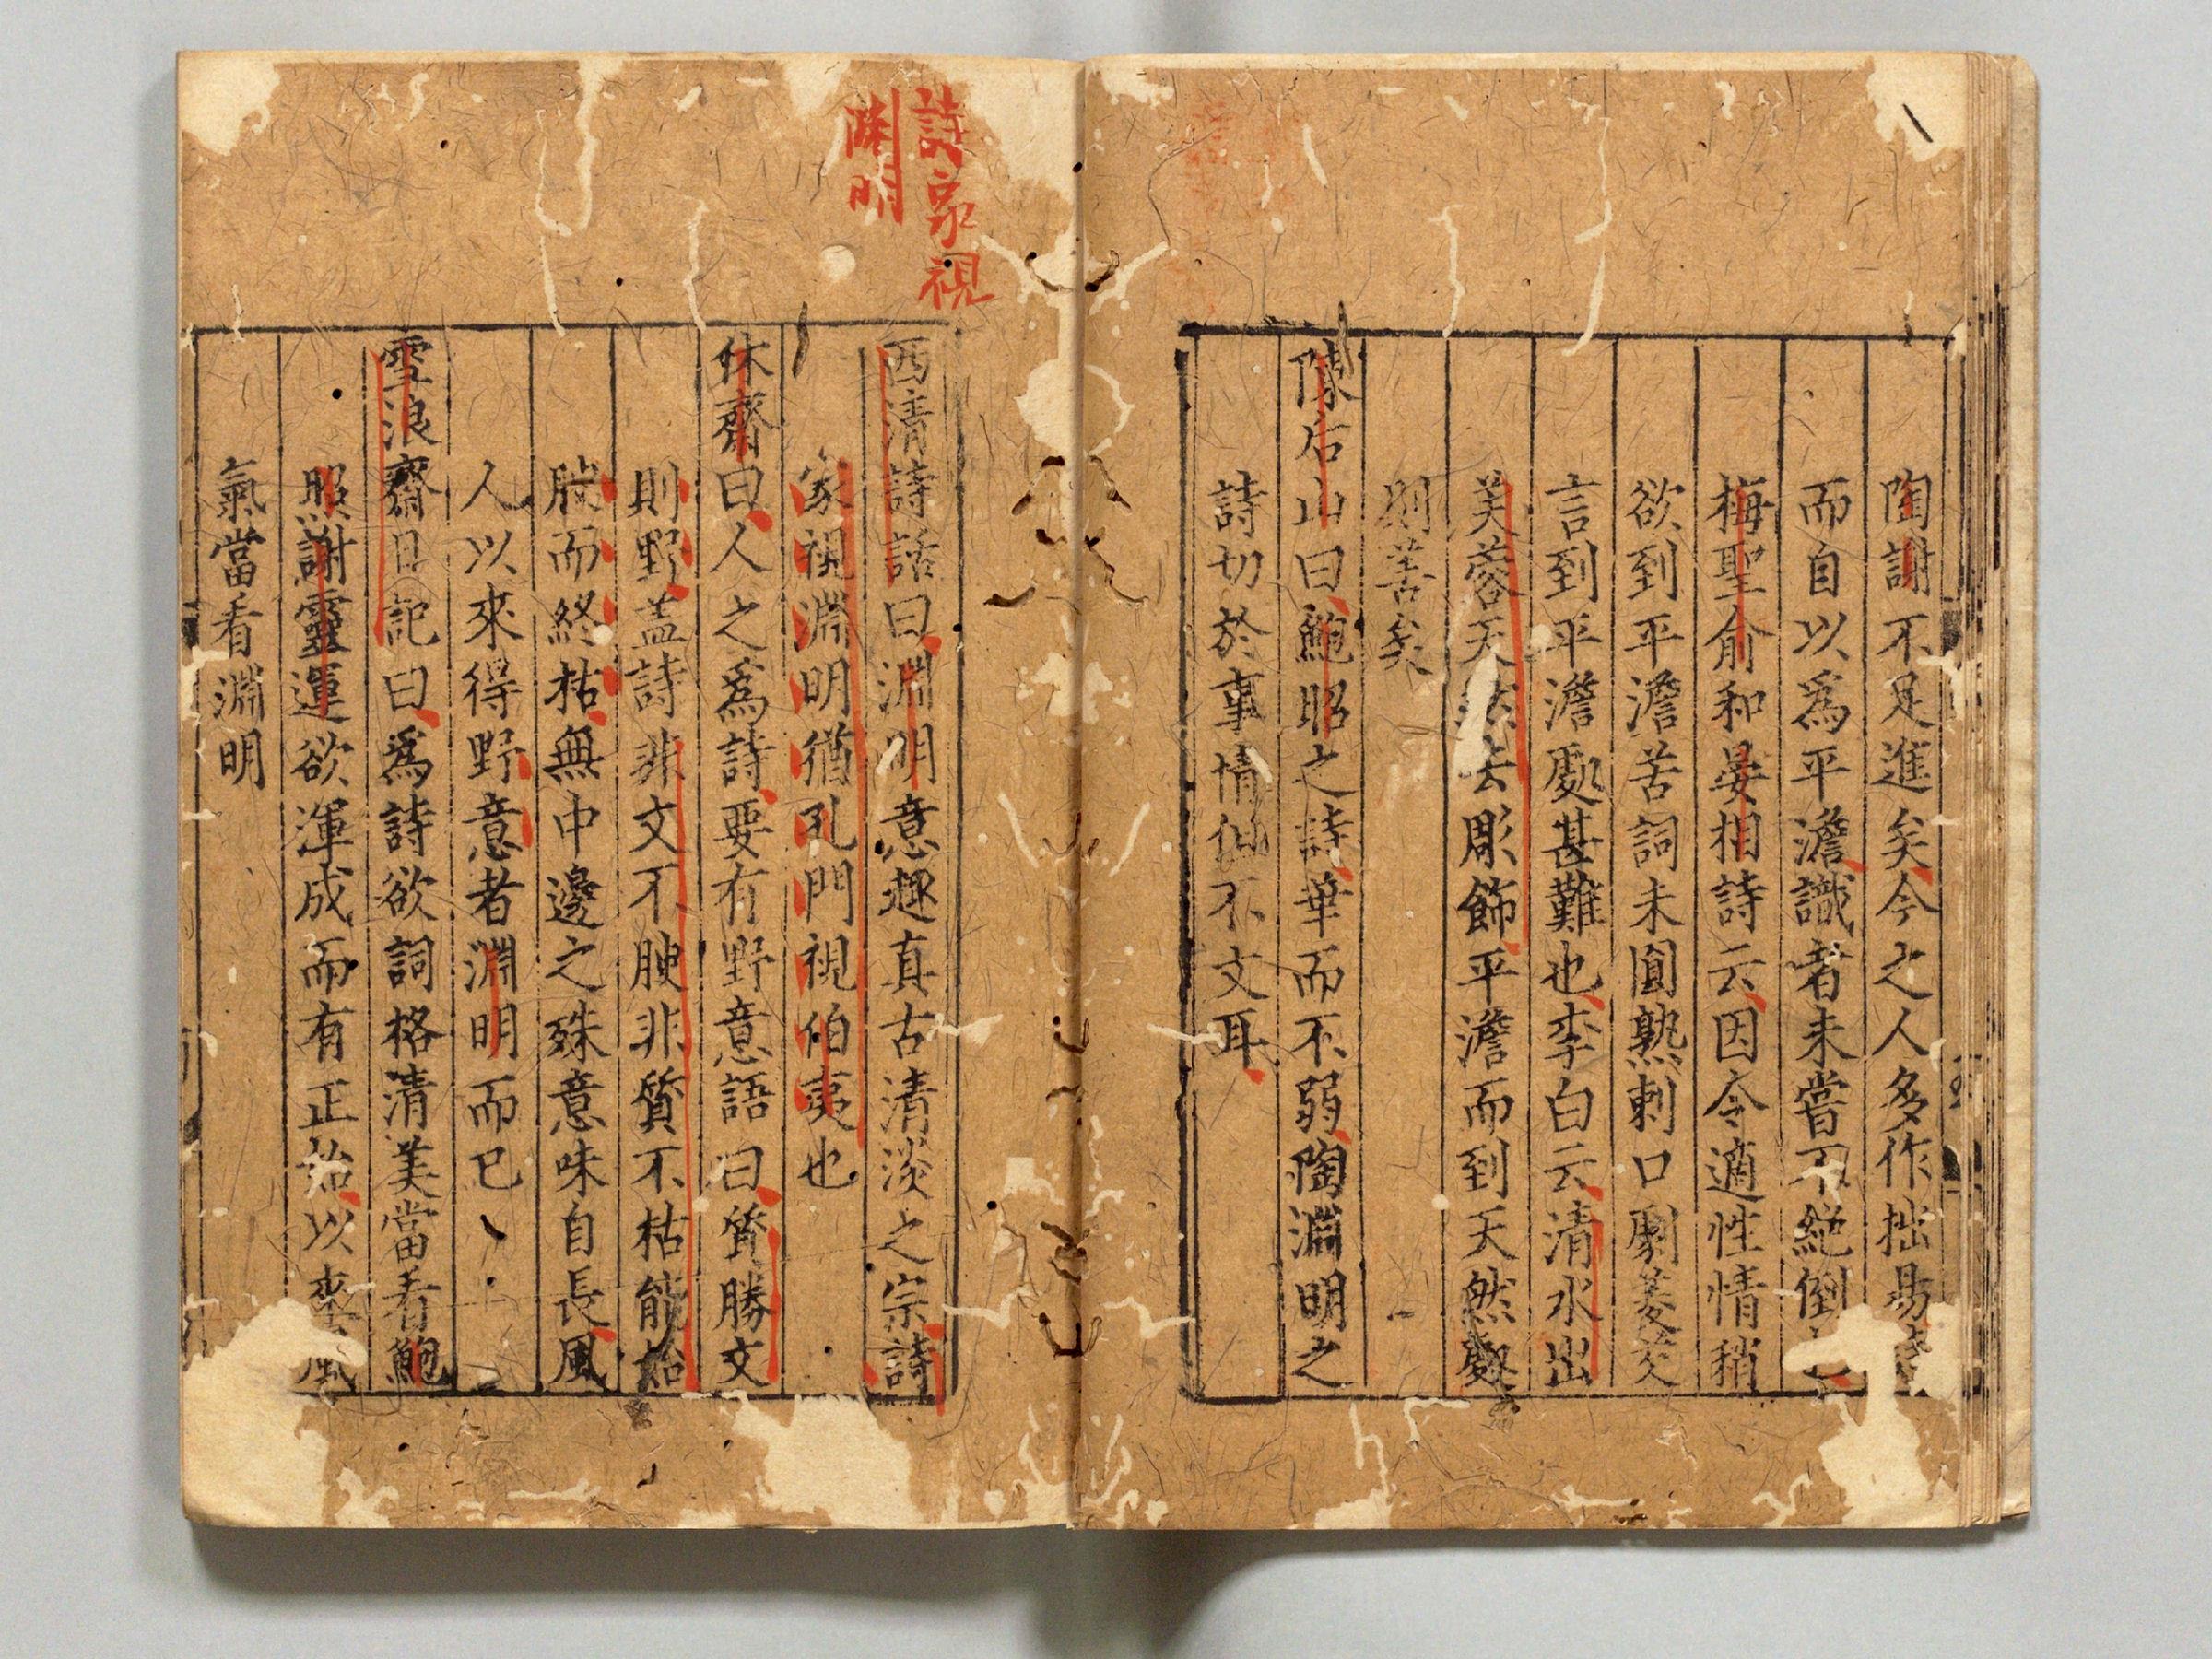 陶謝不足進矣今之人多作拙易
而自以爲平澹識者未嘗不絕倒
梅聖俞和晏相詩云因令適性情稍
欲到平澹苦詞未圓熟刺口劇菱芡
言到平澹處甚難也李白云清水出
芙蓉天然去彫飾平澹而到天然處
則善矣
陳后山曰鮑昭之詩華而不弱陶淵明之
詩切於事情但不文耳
詩家視
淵明
西清詩話曰淵明意趣真古清淡之宗詩
家視淵明猶孔門視伯夷也
休齋曰人之爲詩要有野意語曰質勝文
則野盖詩非文不腴非質不枯能始
腴而終枯無中邊之殊意味自長風
人以來得野意者淵明而已
雪浪齋日記曰爲詩欲詞格清美當看鮑
照謝靈運欲渾成而有正始以來風
氣當看淵明